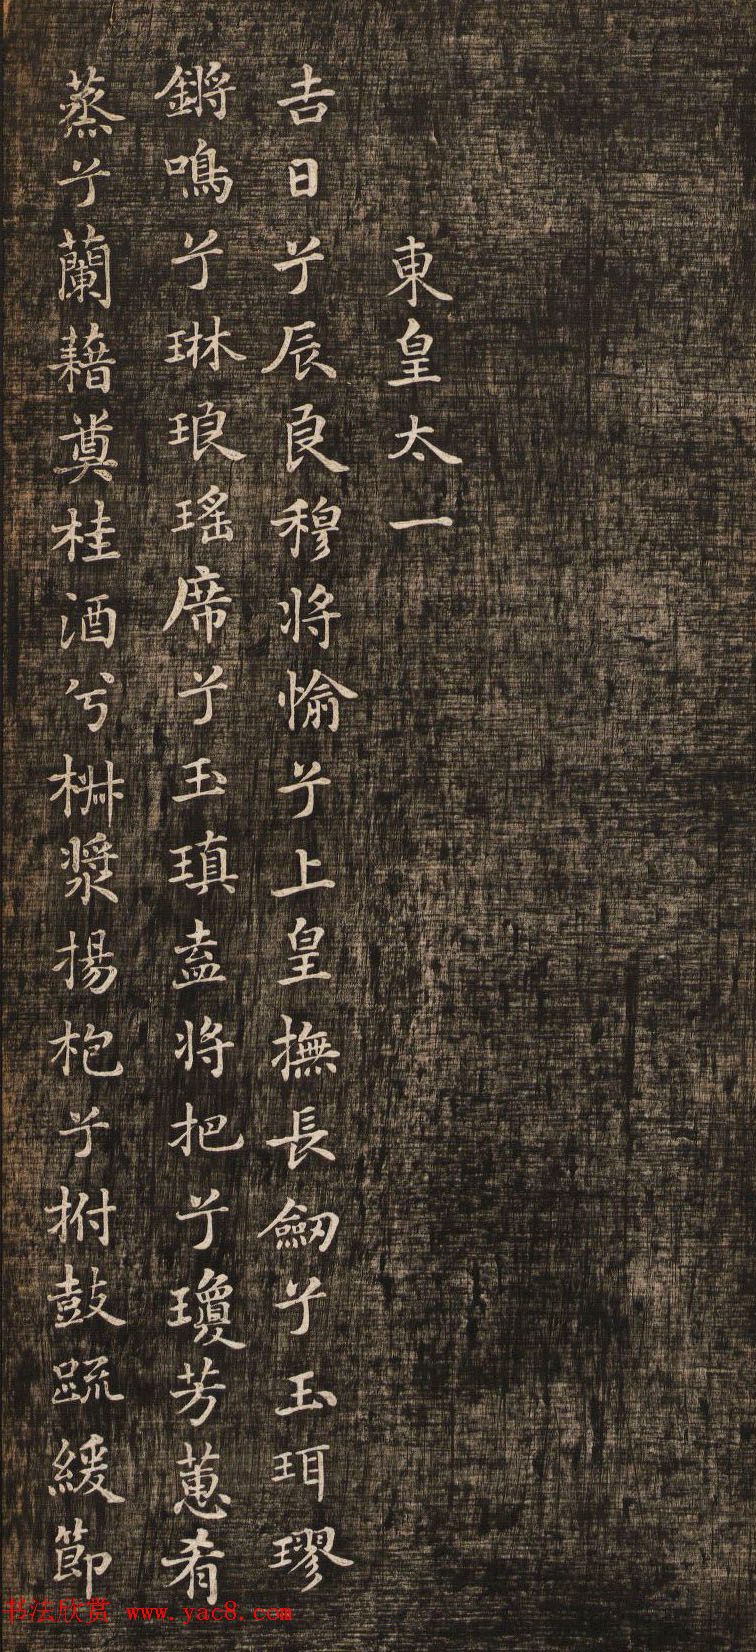 東皇太一
吉日兮辰良穆將愉兮上皇撫長劒兮玉珥璆
鏘鳴兮琳琅瑤席兮玉瑱盍將把兮瓊芳蕙肴
蒸兮蘭藉奠桂酒兮椒漿揚枹兮拊鼓疏緩節
书法欣赏 www.yac8.com